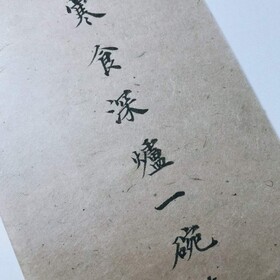 寒食深爐一碗